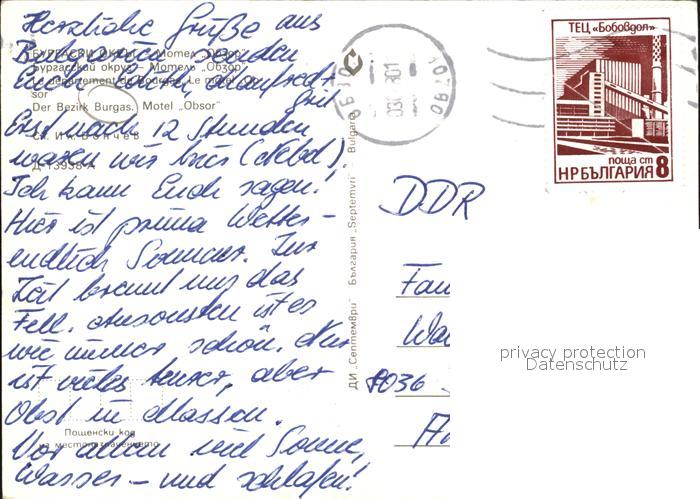 Herzliche Grüße aus
Bulgarien senden
Euch Manfred +
Erst nach 12 Stunden
waren wir hier (Nebel),
Ich kann Euch sagen!
Hier ist prima Wetter –
endlich Sommer. Zur
Zeit brennt uns das
Fell. Ansonsten ist es
wie immer schön. Nur
ist vieles teurer, aber
Obst in Massen.
Vor allem viel Sonne,
Wasser – und schlafen!
БУРГАСКИ ОКРЪГ. Мотел „Обзор"
Бургасский округ. Мотель „Обзор"
Le département de Bourgas. Le motel „Ob-
sor"
Der Bezirk Burgas. Motel „Obsor"
Д-13938-А
Пощенски код
на местоназначението
ДИ „Септември" България „Septemvri" Bulgaria
ОБЗОР
ТЕЦ „Бобовдол"
поща ст 8
НР БЪЛГАРИЯ
DDR
Fam
8036
privacy protection
Datenschutz